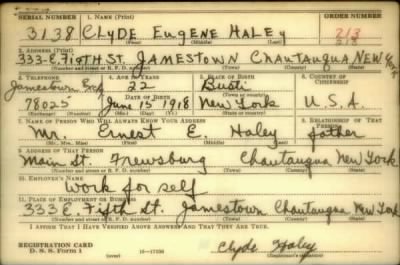 SERIAL NUMBER 1. NAME (Print) ORDER NUMBER
3138 CLYDE EUGENE HALEY 213
(First) (Middle) (Last)
2. ADDRESS (Print)
333-E. FIFTH ST. JAMESTOWN CHAUTAUQUA NEW YORK
(Number and street or R. F. D. number) (Town) (County) (State)
3. TELEPHONE 4. AGE IN YEARS 5. PLACE OF BIRTH 6. COUNTRY OF CITIZENSHIP
Jamestown 22 Busti
DATE OF BIRTH (Town or county)
78025 June 15 1918 New York U.S.A.
(Mo.) (Day) (Yr.) (State or country)
7. NAME OF PERSON WHO WILL ALWAYS KNOW YOUR ADDRESS 8. RELATIONSHIP OF THAT PERSON
Mr. Ernest E. Haley father
(Mr., Mrs., Miss) (First) (Middle) (Last)
9. ADDRESS OF THAT PERSON
Main St. Frewsburg Chautauqua New York
(Number and street or R. F. D. number) (Town) (County) (State)
10. EMPLOYER'S NAME
Work for self
11. PLACE OF EMPLOYMENT OR BUSINESS
333 E. Fifth St. Jamestown Chautauqua New York
(Number and street or R. F. D. number) (Town) (County) (State)
I AFFIRM THAT I HAVE VERIFIED ABOVE ANSWERS AND THAT THEY ARE TRUE.
REGISTRATION CARD
D. S. S. Form 1 (over) Clyde Haley
(Registrant's signature)